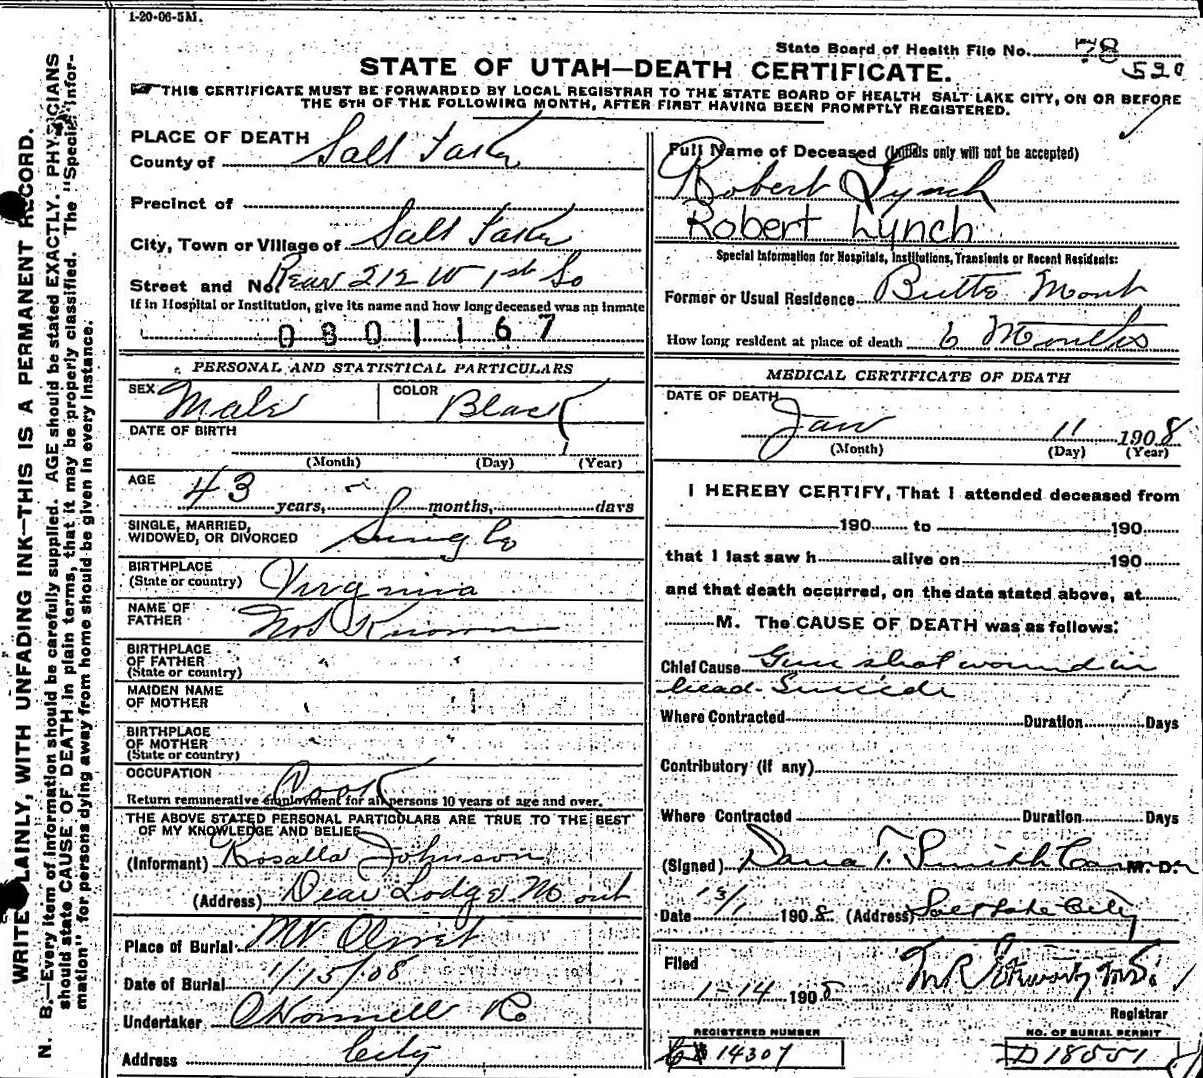 1-20-06-5M.
State Board of Health File No. 78
520
STATE OF UTAH—DEATH CERTIFICATE.
THIS CERTIFICATE MUST BE FORWARDED BY LOCAL REGISTRAR TO THE STATE BOARD OF HEALTH SALT LAKE CITY, ON OR BEFORE
THE 5TH OF THE FOLLOWING MONTH, AFTER FIRST HAVING BEEN PROMPTLY REGISTERED.
WRITE PLAINLY, WITH UNFADING INK—THIS IS A PERMANENT RECORD.
N. B.—Every item of information should be carefully supplied. AGE should be stated EXACTLY. PHYSICIANS
should state CAUSE OF DEATH in plain terms, that it may be properly classified. The "Special Infor-
mation" for persons dying away from home should be given in every instance.
PLACE OF DEATH
County of Salt Lake
Precinct of
City, Town or Village of Salt Lake
Street and No. Rear 212 W 1st So
If in Hospital or Institution, give its name and how long deceased was an inmate
0801167
PERSONAL AND STATISTICAL PARTICULARS
SEX Male COLOR Black
DATE OF BIRTH
(Month) (Day) (Year)
AGE
43 years, months, days
SINGLE, MARRIED,
WIDOWED, OR DIVORCED Single
BIRTHPLACE
(State or country) Virginia
NAME OF
FATHER Not Known
BIRTHPLACE
OF FATHER
(State or country)
MAIDEN NAME
OF MOTHER
BIRTHPLACE
OF MOTHER
(State or country)
OCCUPATION Cook
Return remunerative employment for all persons 10 years of age and over.
THE ABOVE STATED PERSONAL PARTICULARS ARE TRUE TO THE BEST
OF MY KNOWLEDGE AND BELIEF
(Informant) Rosalla Johnson
(Address) Dear Lodge Mont
Place of Burial Mt Olivet
Date of Burial 1/15/08
Undertaker O'Donnell Co
Address City
Full Name of Deceased (Initials only will not be accepted)
Robert Lynch
Robert Lynch
Special Information for Hospitals, Institutions, Transients or Recent Residents:
Former or Usual Residence Butte Mont
How long resident at place of death 6 Months
MEDICAL CERTIFICATE OF DEATH
DATE OF DEATH
Jan 11 1908
(Month) (Day) (Year)
I HEREBY CERTIFY, That I attended deceased from
190 to 190
that I last saw h alive on 190
and that death occurred, on the date stated above, at
M. The CAUSE OF DEATH was as follows:
Chief Cause Gun shot wound in
head - Suicide
Where Contracted Duration Days
Contributory (if any)
Where Contracted Duration Days
(Signed) Dana T. Smith M. D.
Date 1908 (Address) Salt Lake City
Filed
1-14 1908
Registrar
REGISTERED NUMBER
14307
NO. OF BURIAL PERMIT
D18551